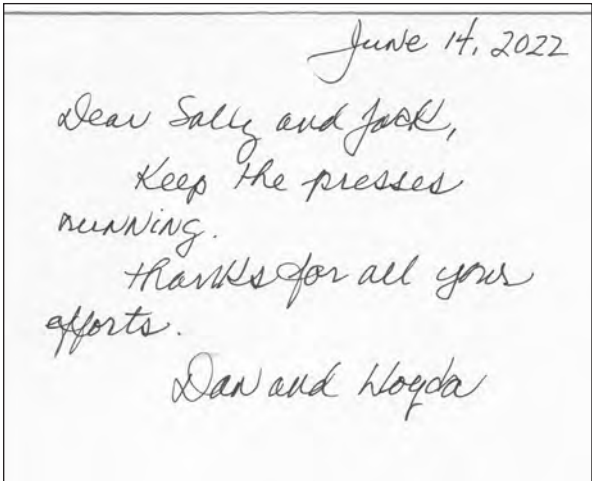 June 14, 2022
Dear Sally and Jack,
Keep the presses
running.
Thanks for all your
efforts.
Dan and